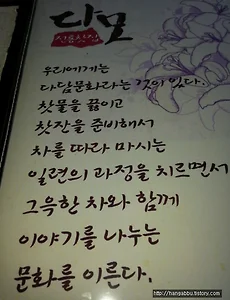 다모
전통찻집
우리에게는
다담문화라는 것이 있다.
찻물을 끓이고
찻잔을 준비해서
차를 따라 마시는
일련의 과정을 치르면서
그윽한 차와 함께
이야기를 나누는
문화를 이른다.
http://hangabbu.tistory.com